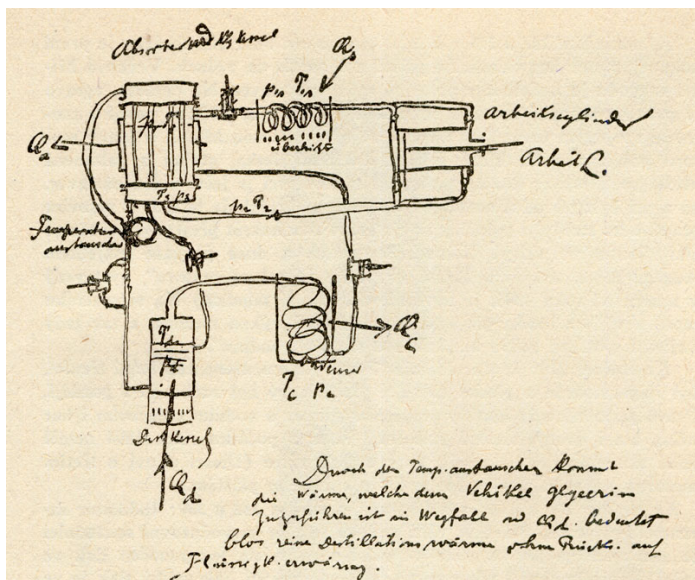 Absorber und Kessel
Qs
p₁ T₁
überhitz
Arbeitscylinder
Arbeit L.
Qa
T₂ p₂
p₂ T₂
Temperatur
austauscher
Qc
Td
pd
Tc pc
Dest Kessel
Qd
Durch den Temp. austauscher kommt
die Wärme, welche dem Vehikel Glycerin
zuzuführen ist in Wegfall und Qd. bedeutet
blos reine Destillationswärme ohne Rücks. auf
Flüssigk. erwärmg.